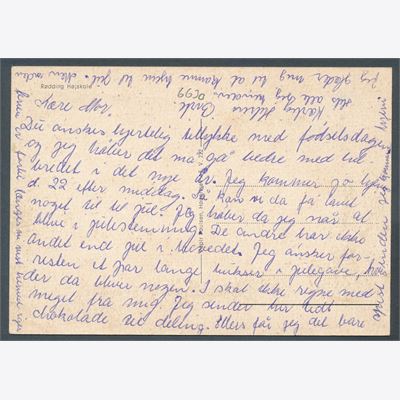 Rødding Højskole
0699
Kære Mor.
Du ønskes hjertelig tillykke med fødselsdagen
og jeg håber det må gå bedre med hel-
bredet i det nye år. Jeg kommer jo hjem
d. 22 efter middag. Kan vi da få lavet
noget til til jul. Jeg håber da jeg når at
blive i julestemning. De andre har ikke
andet end jul i hovedet. Jeg ønsker for-
resten et par lange bukser i julegave,
der da bliver nogen. I skal ikke regne med
meget fra mig. Jeg sender her lidt
chokolade til deling. Ellers får jeg det bare
spist inden jeg kommer hjem
jeg glæder mig til at komme hjem til jul. Men inden
hils alle
Kærlig hilsen